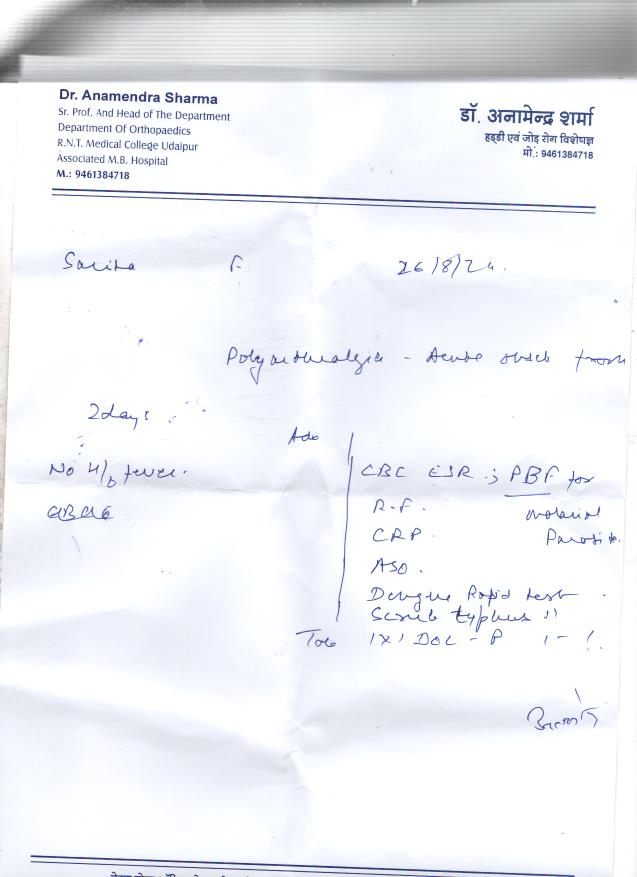 Dr. Anamendra Sharma
Sr. Prof. And Head of The Department
Department Of Orthopaedics
R.N.T. Medical College Udaipur
Associated M.B. Hospital
M.: 9461384718
डॉ. अनामेन्द्र शर्मा
हड्डी एवं जोड़ रोग विशेषज्ञ
मो.: 9461384718
Sarita F. 26/8/24.
Polyarthralgia - Acute onset from
2 days
Adv
No H/o fever.
CBC ESR ; PBF for
malarial
Parasite.
R.F.
CRP.
ASO.
Dengue Rapid test.
Scrub typhus "
Tab 1x1 DOL-P 1-1.